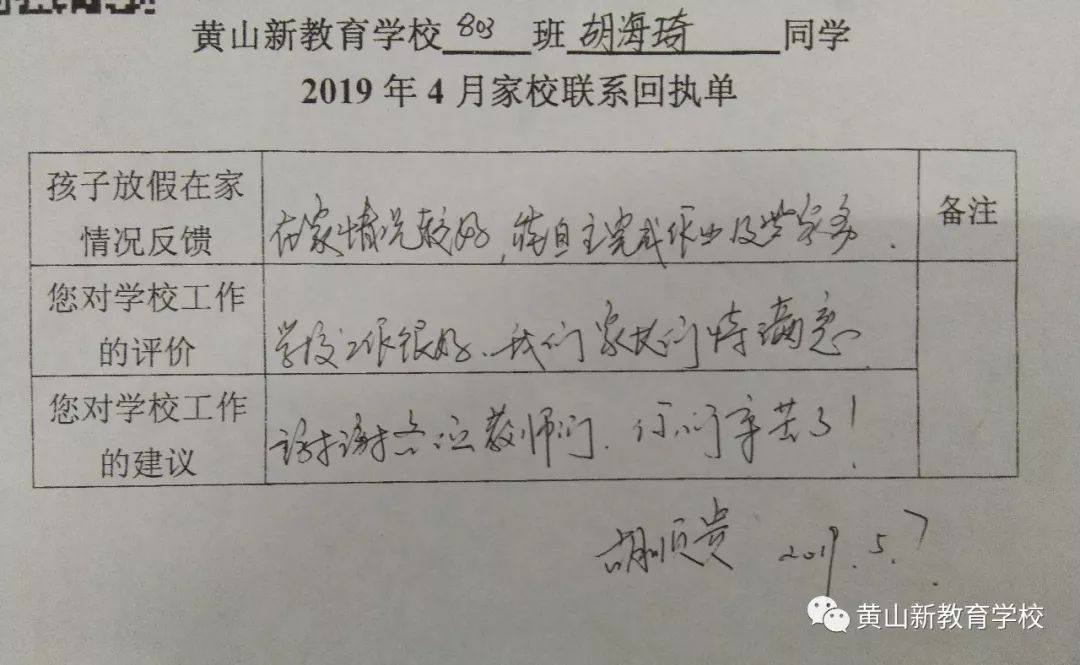 黄山新教育学校 803 班 胡海琦 同学
2019 年 4 月家校联系回执单
孩子放假在家
情况反馈
在家情况较好，能自主完成作业及些家务.
备注
您对学校工作
的评价
学校工作很好、我们家长们特满意
您对学校工作
的建议
谢谢各位教师们. 你们辛苦了！
胡顺贵 2019.5.7.
黄山新教育学校